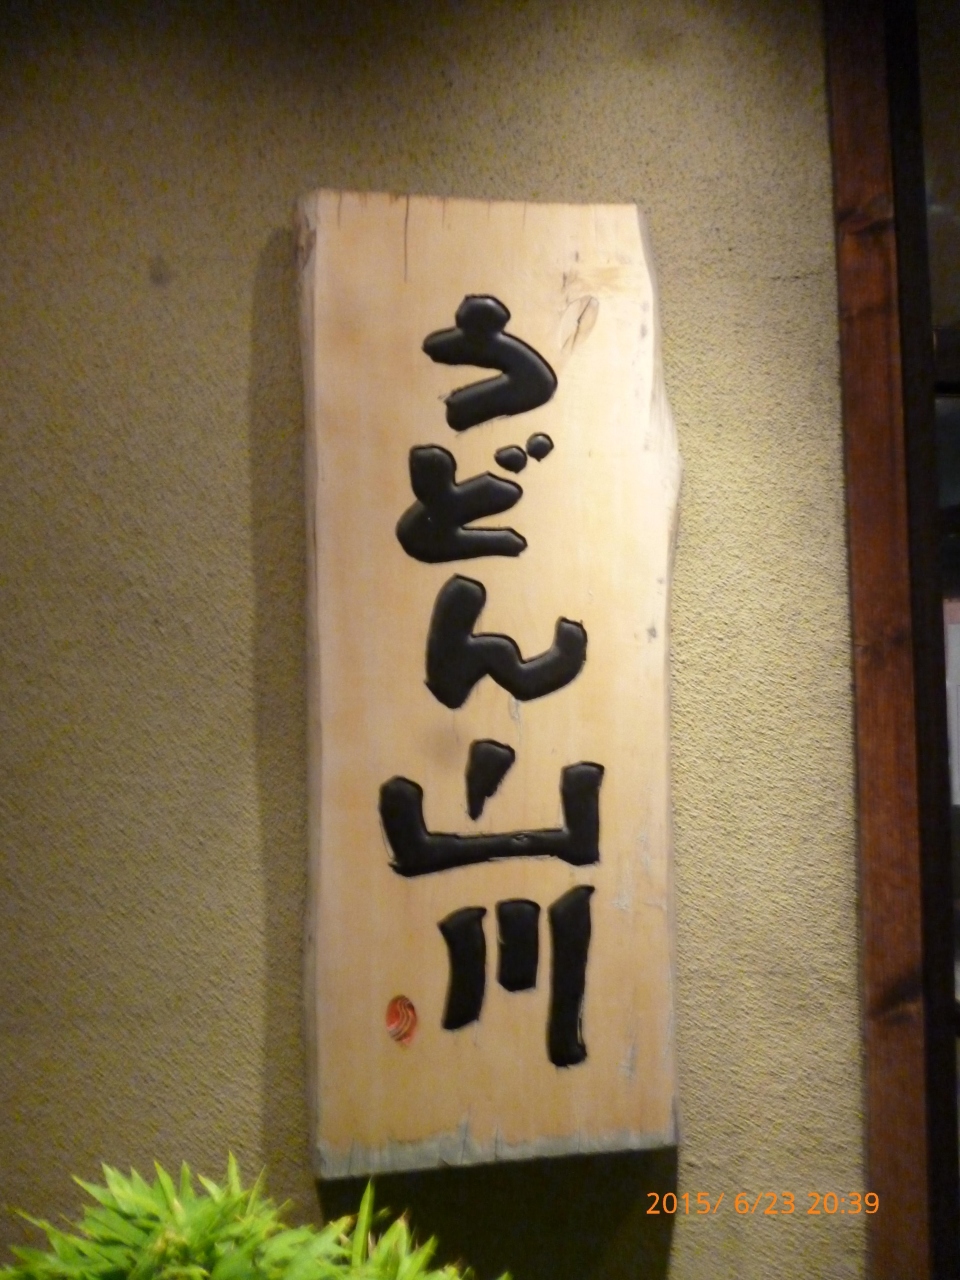 うどん山川
2015/ 6/23 20:39